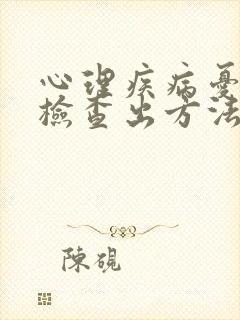 心理疾病憂
檢查出方法
陳硯